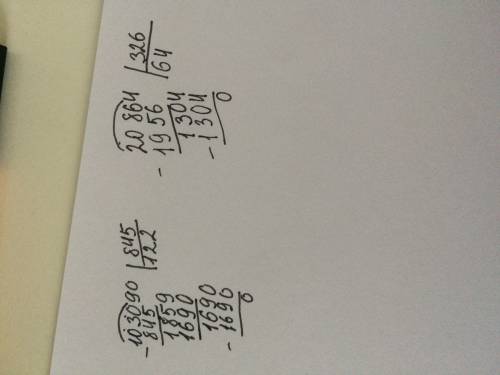 103090 | 845
- 845 | 122
1859
1690
1690
- 1690
0
20864 | 326
- 1956 | 64
1304
- 1304
0